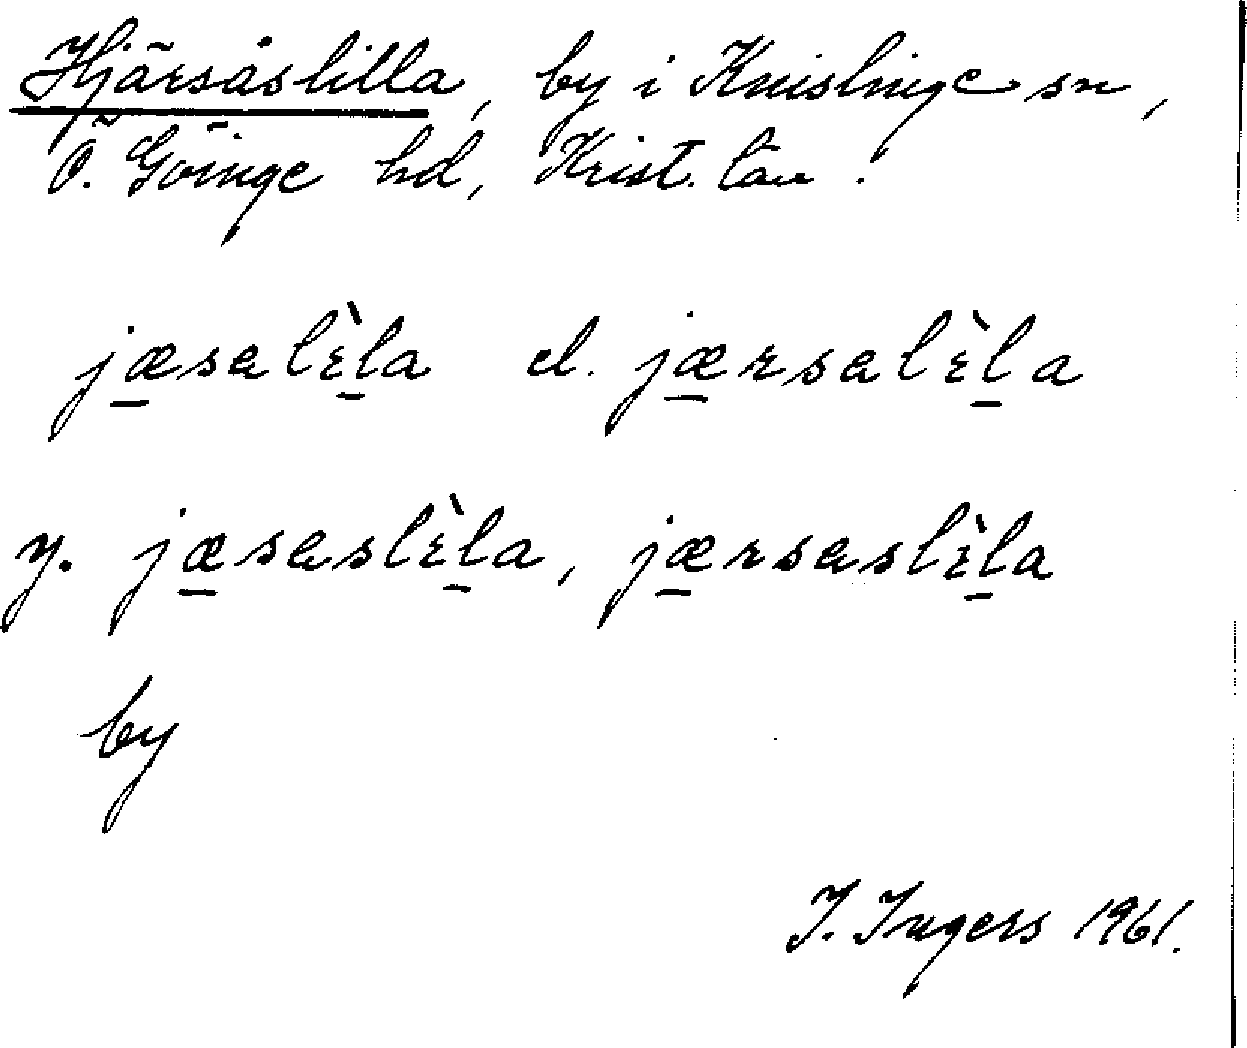 Hjärsåslilla, by i Knislinge sn,
Ö. Göinge hd, Krist. län.
jæsalɛ̀la el. jærsalɛ̀la
y. jæsaslɛ̀la, jærsaslɛ̀la
by
I. Ingers 1961.